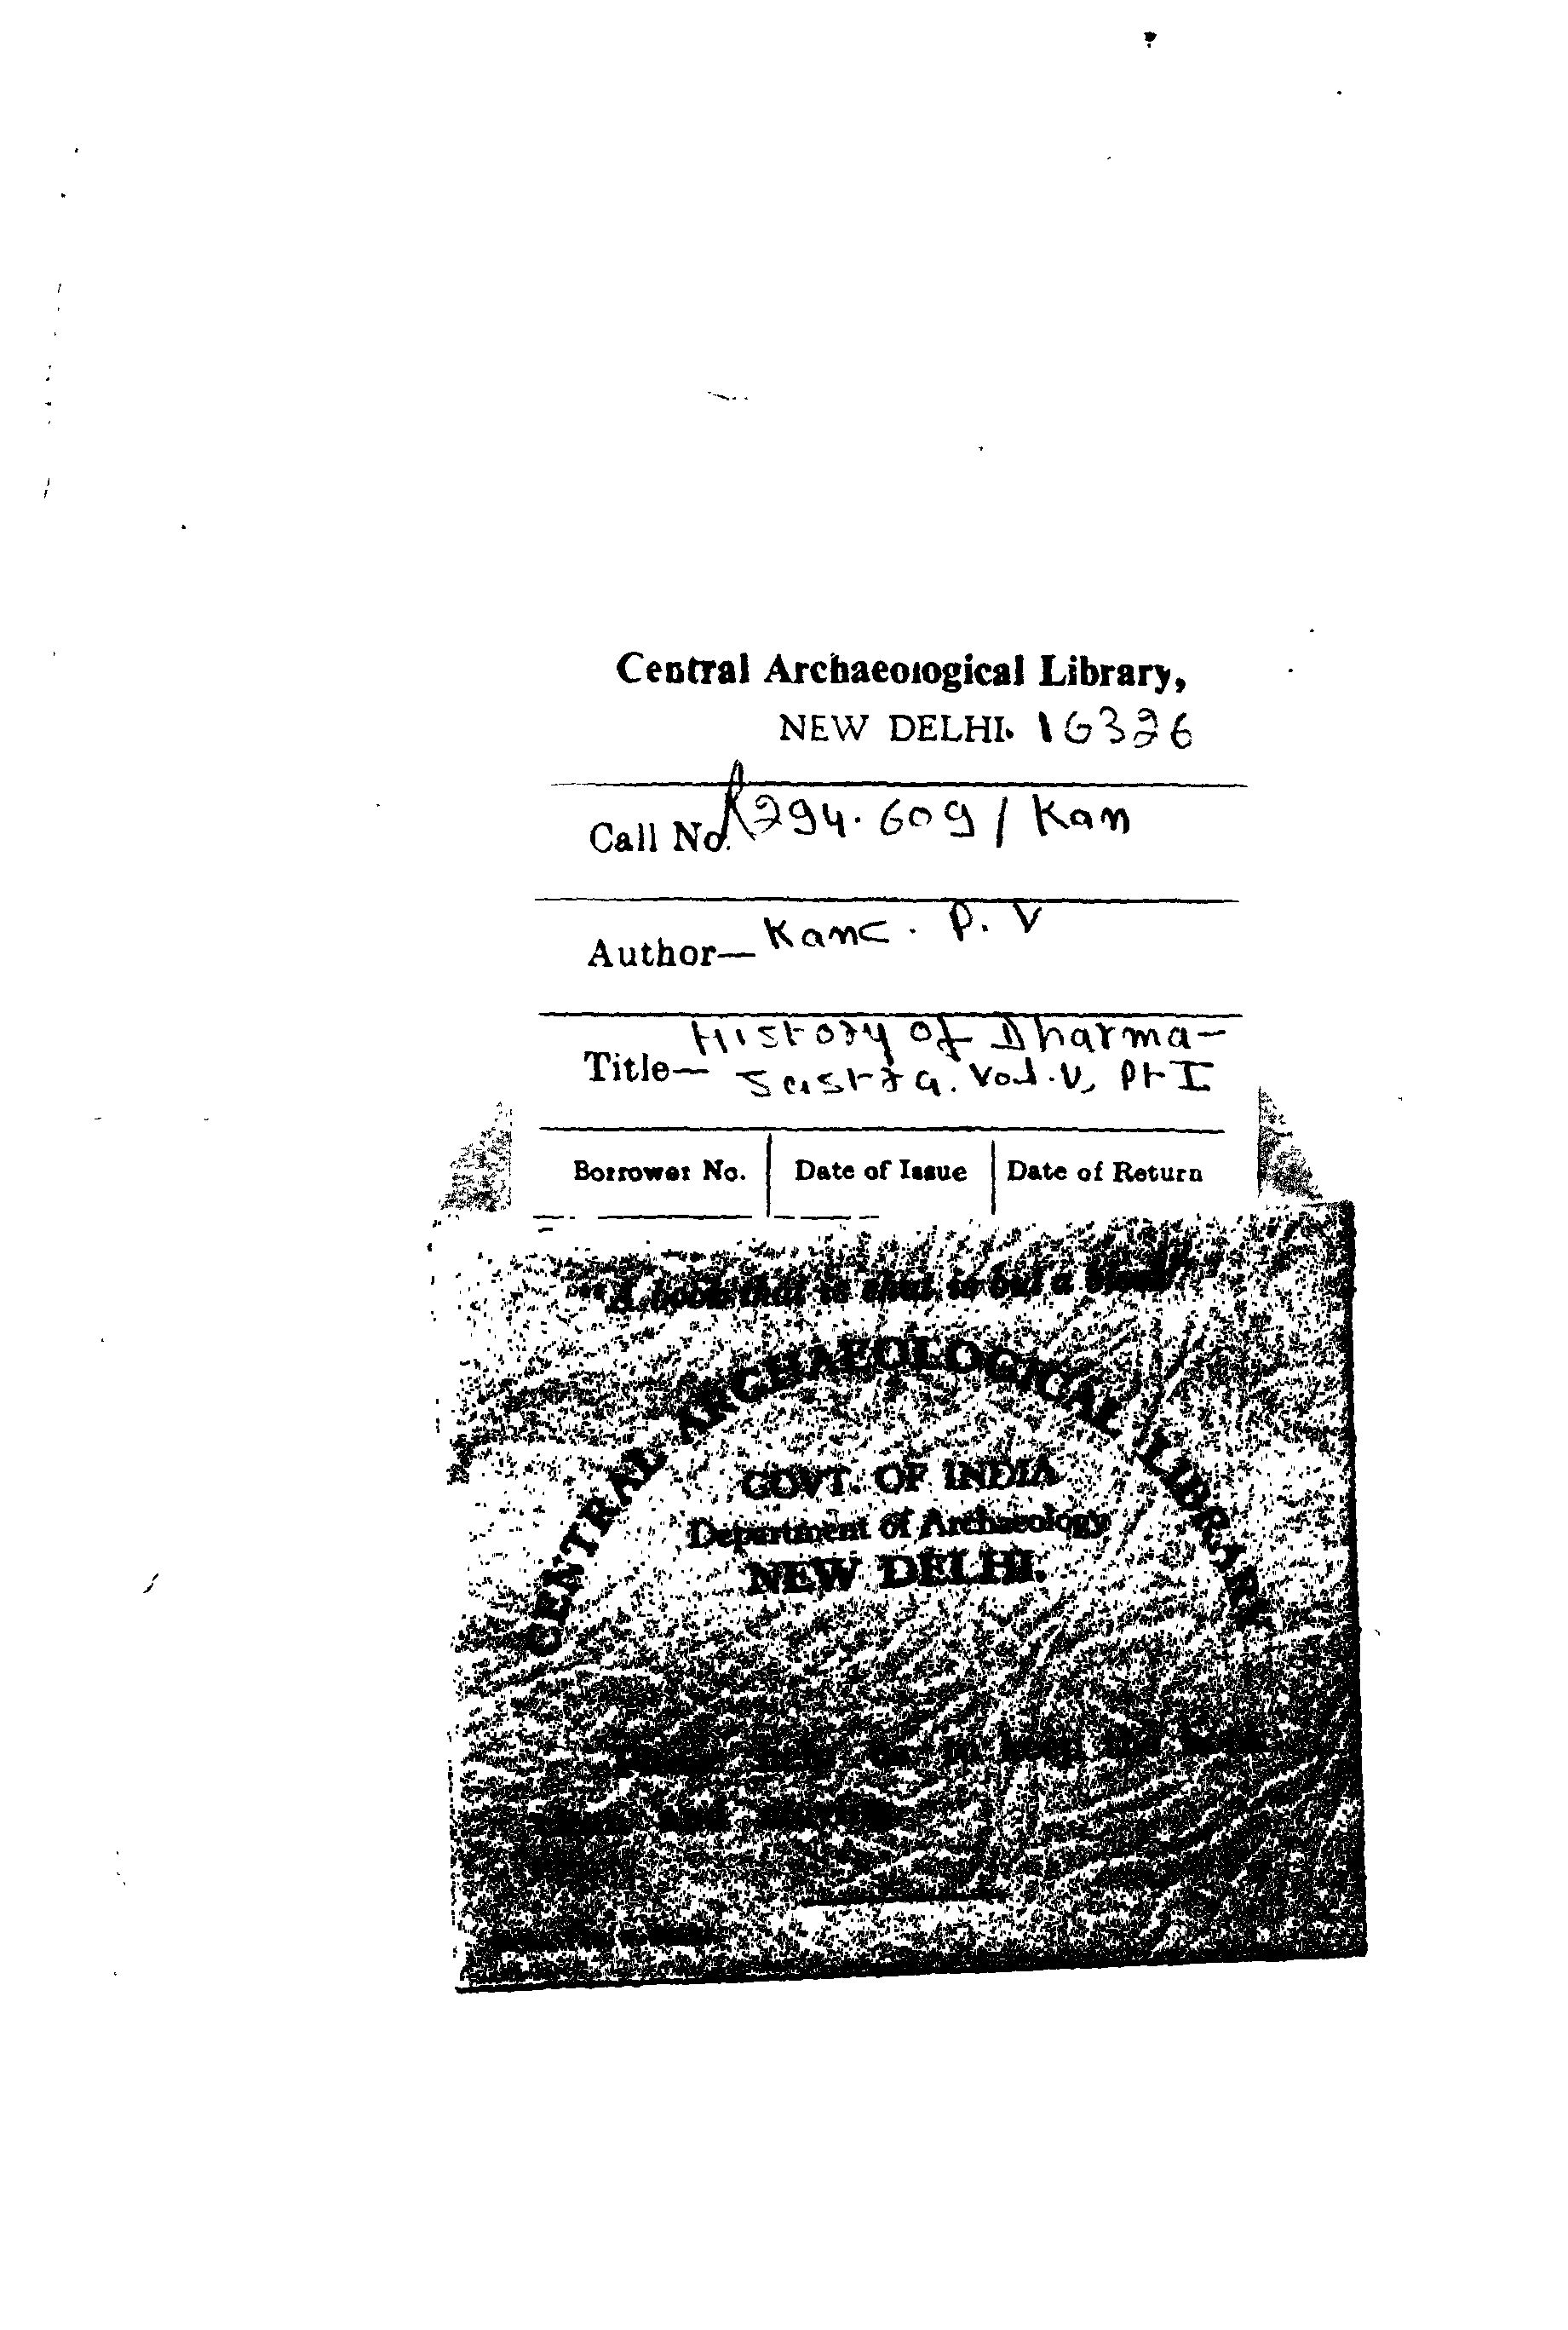 Central Archaeological Library,
NEW DELHI. 16326
Call No. R294.609/Kan
Author— Kane. P. V
Title— History of Dharma-
Sastra. Vol.V, Pt I
Borrower No. | Date of Issue | Date of Return
"A book that is shut is but a block"
CENTRAL ARCHAEOLOGICAL LIBRARY
GOVT. OF INDIA
Department of Archaeology
NEW DELHI.
Please help us to keep the book
clean and moving.